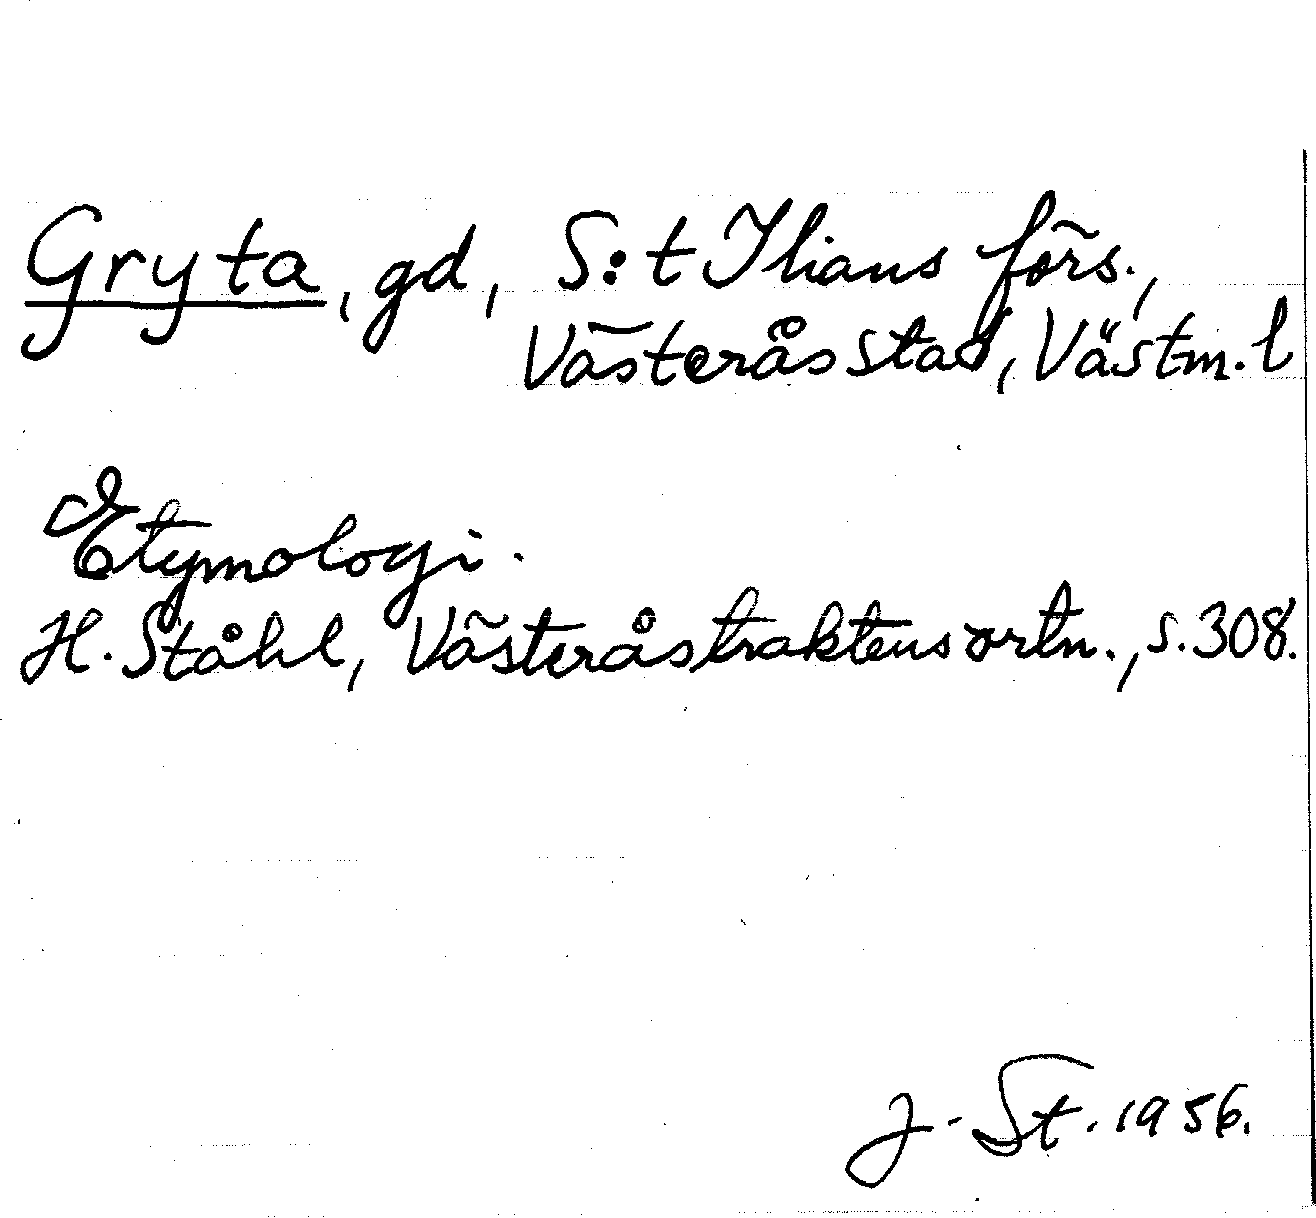 Gryta, gd, S:t Ilians förs.,
Västerås stad, Västm. l
Etymologi.
H. Ståhl, Västeråstraktens ortn., s. 308.
J. St. 1956.